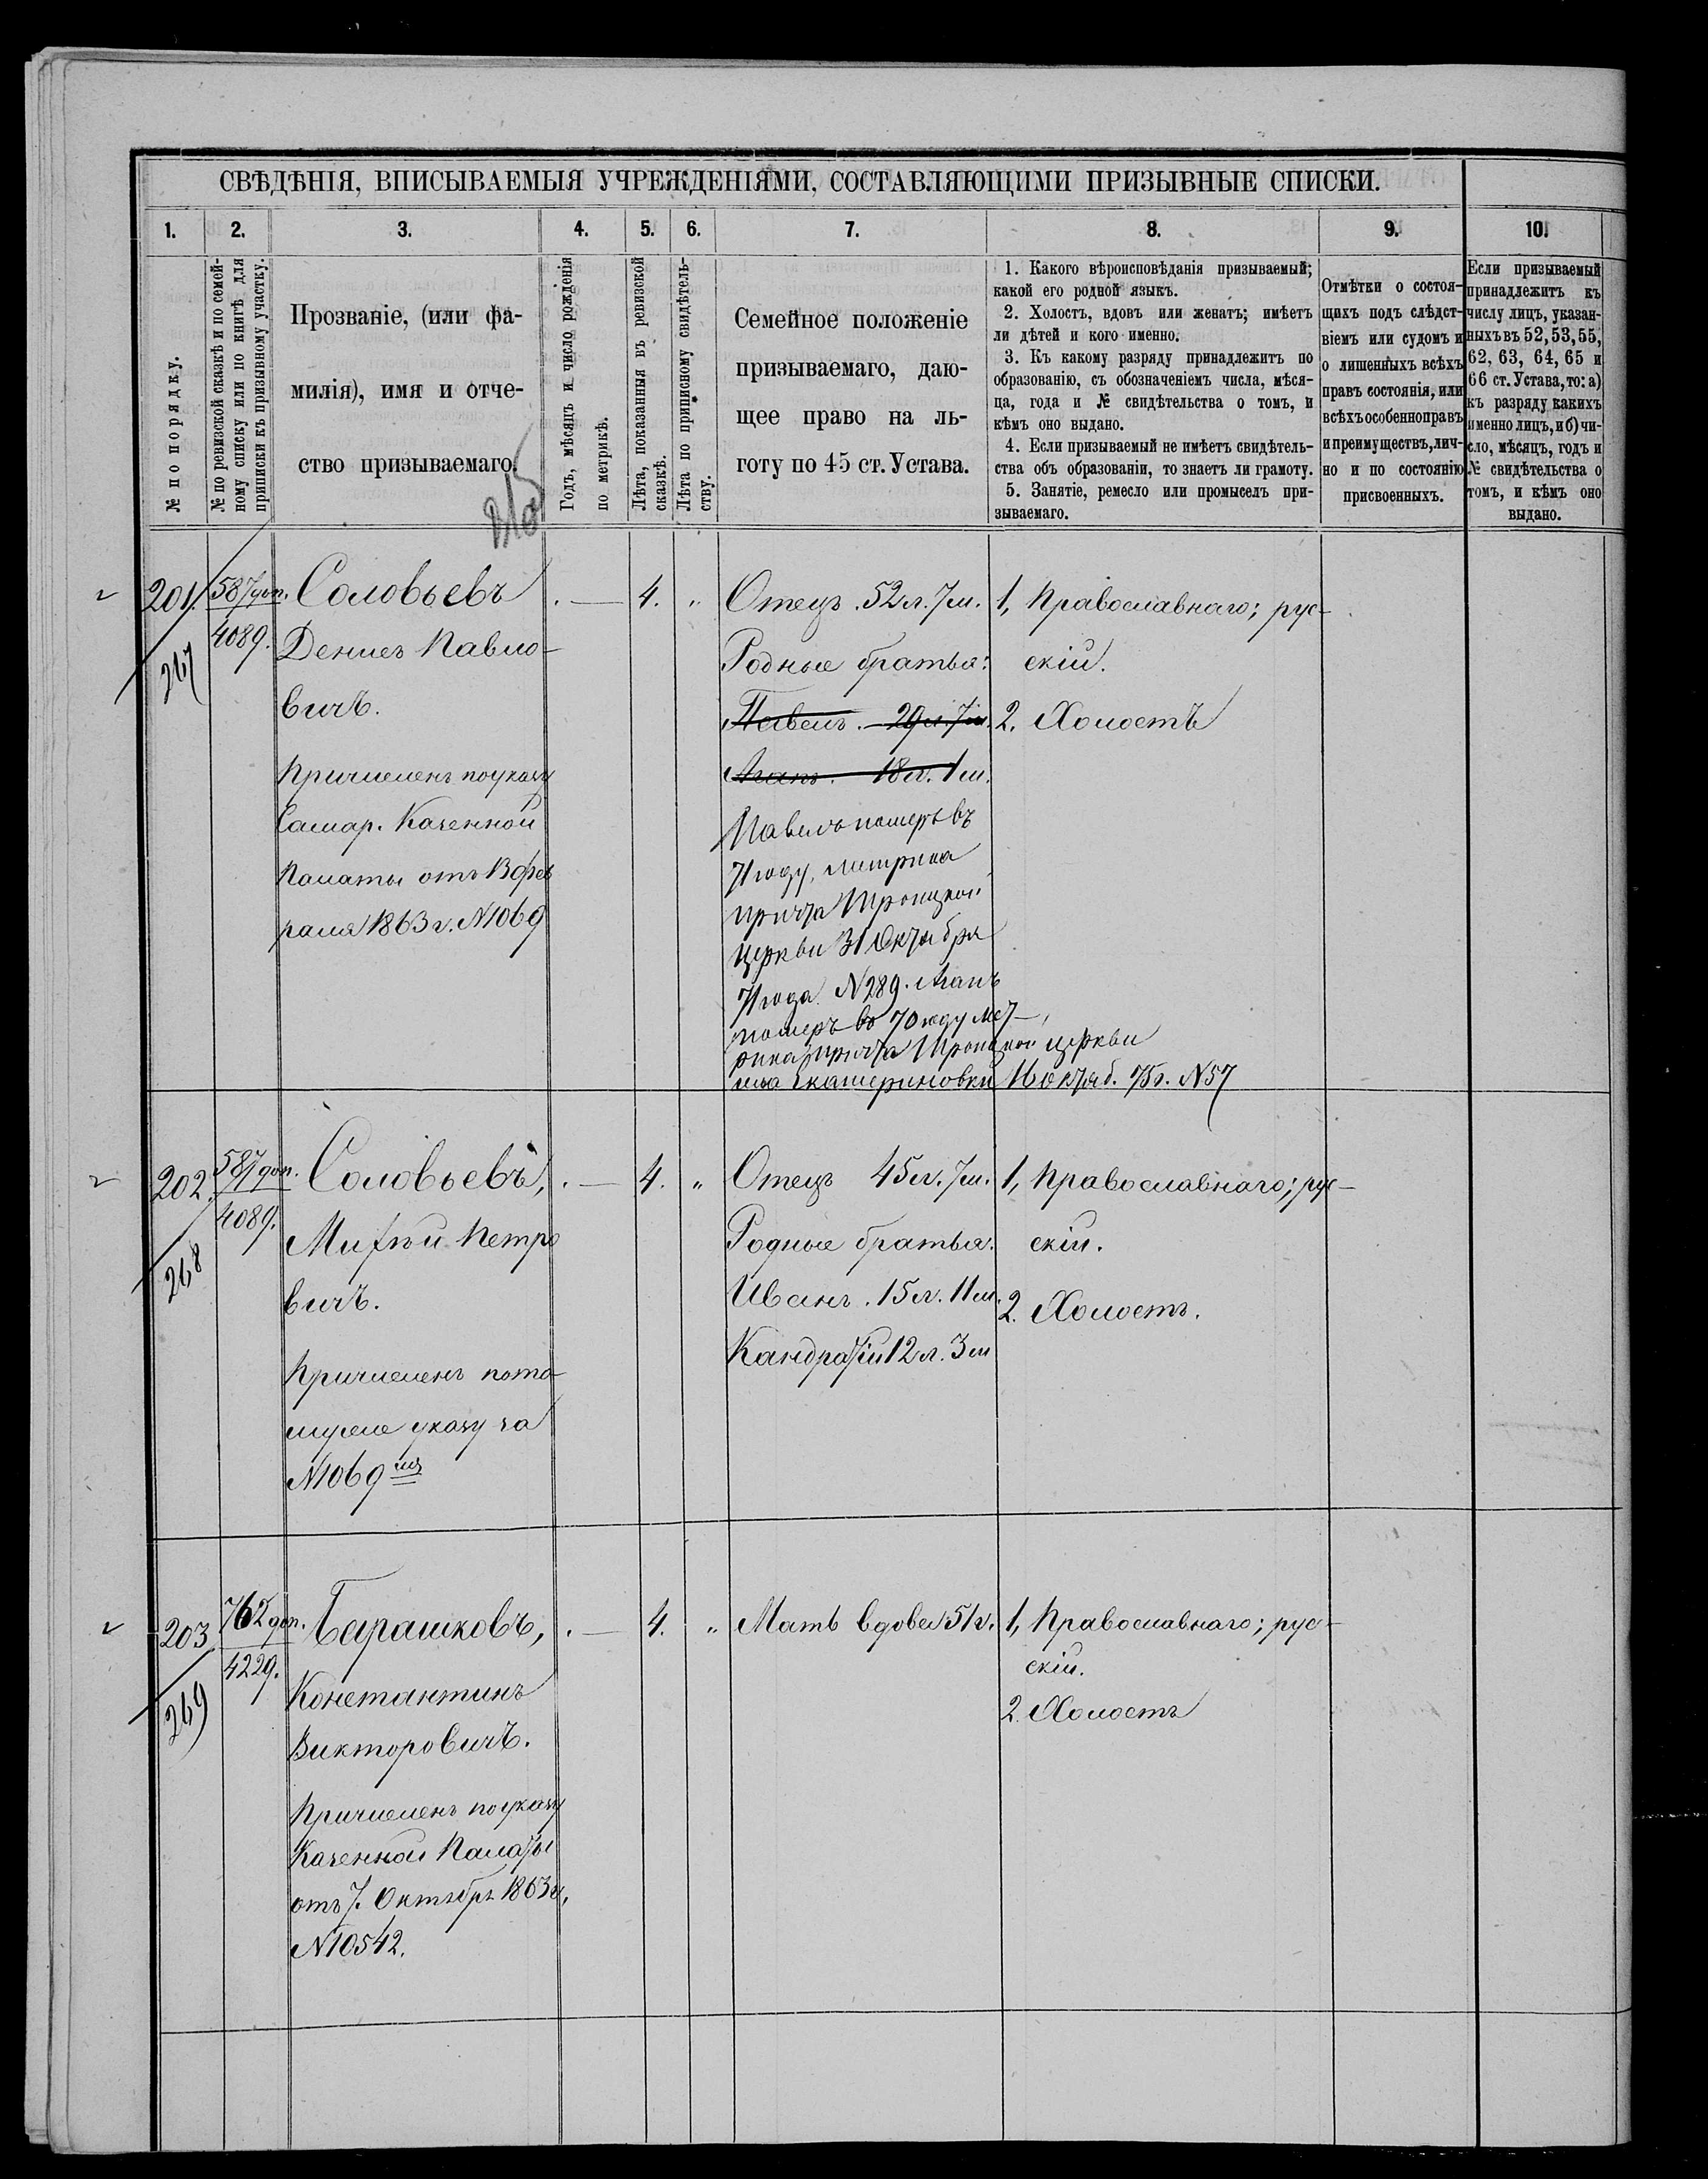 СВѢДѢНІЯ, ВПИСЫВАЕМЫЯ УЧРЕЖДЕНІЯМИ, СОСТАВЛЯЮЩИМИ ПРИЗЫВНЫЕ СПИСКИ.
1. 2. 3. 4. 5. 6. 7. 8. 9. 10.
№ по порядку.
№ по ревизской сказкѣ и по семей-
ному списку или по книгѣ для
приписки къ призывному участку.
Прозваніе, (или фа-
милія), имя и отче-
ство призываемаго.
Годъ, мѣсяцъ и число рожденія
по метрикѣ.
Лѣта, показанныя въ ревизской
сказкѣ.
Лѣта по приписному свидѣтель-
ству.
Семейное положеніе
призываемаго, даю-
щее право на ль-
готу по 45 ст. Устава.
1. Какого вѣроисповѣданія призываемый;
какой его родной языкъ.
2. Холостъ, вдовъ или женатъ; имѣетъ
ли дѣтей и кого именно.
3. Къ какому разряду принадлежитъ по
образованію, съ обозначеніемъ числа, мѣся-
ца, года и № свидѣтельства о томъ, и
кѣмъ оно выдано.
4. Если призываемый не имѣетъ свидѣтель-
ства объ образованіи, то знаетъ ли грамоту.
5. Занятіе, ремесло или промыселъ при-
зываемаго.
Отмѣтки о состоя-
щихъ подъ слѣдст-
віемъ или судомъ и
о лишенныхъ всѣхъ
правъ состоянія, или
всѣхъ особенно правъ
и преимуществъ, лич-
но и по состоянію
присвоенныхъ.
Если призываемый
принадлежитъ къ
числу лицъ, указан-
ныхъ въ 52, 53, 55,
62, 63, 64, 65 и
66 ст. Устава, то: а)
къ разряду какихъ
именно лицъ, и б) чи-
сло, мѣсяцъ, годъ и
№ свидѣтельства о
томъ, и кѣмъ оно
выдано.
201.
267
587 доп.
4089.
Соловьевъ
Денисъ Павло-
вичъ.
Причисленъ по указу
Самар. Казенной
Палаты отъ 13 фев
раля 1863 г. N1069
. — 4. "
Отецъ. 52 л. 7 м.
Родные братья:
Павелъ. 29 л. 7 м.
Агапъ. 18 л. 1 м.
Павелъ померъ въ
71 году, метрика
причта Троицкой
церкви 31 Октября
71 года N289. Агапъ
померъ въ 70 году мет-
рика причта Троицкой церкви
села Екатериновки 16 октяб. 75 г. N57
1, Православнаго; рус-
скій.
2. Холостъ
202.
268
587 доп.
4089.
Соловьевъ,
Мифѣй Петро
вичъ.
Причисленъ по то-
муже указу за
N1069 мъ
. — 4. "
Отецъ 45 л. 7 м.
Родные братья.
Иванъ. 15 л. 11 м.
Кандратій 12 л. 3 м
1, Православнаго; рус-
скій.
2. Холостъ.
203
269
762 доп.
4229.
Барашковъ,
Константинъ
Викторовичъ.
Причисленъ по указу
Казенной Палаты
отъ 7. Октября 1863 г.
N10542.
. — 4. "
Мать вдова 51 г.
1, Православнаго; рус-
скій.
2. Холостъ